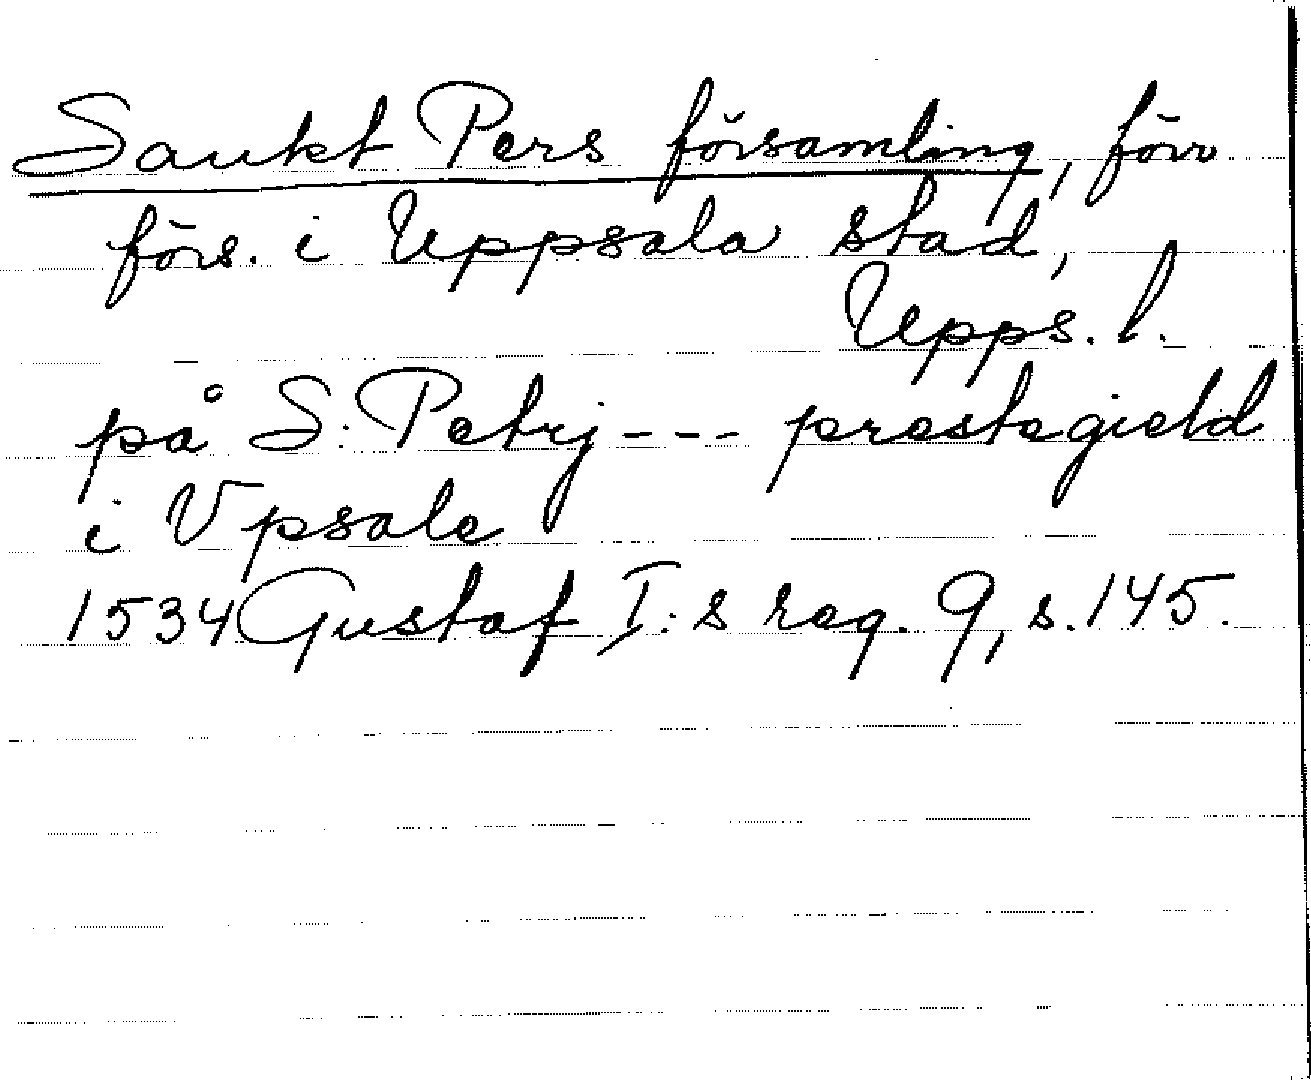 Sankt Pers församling, förr
förs. i Uppsala stad,
Upps. l.
på S: Petrj --- prestegield
i Vpsale
1534 Gustaf I:s reg. 9, s. 145.